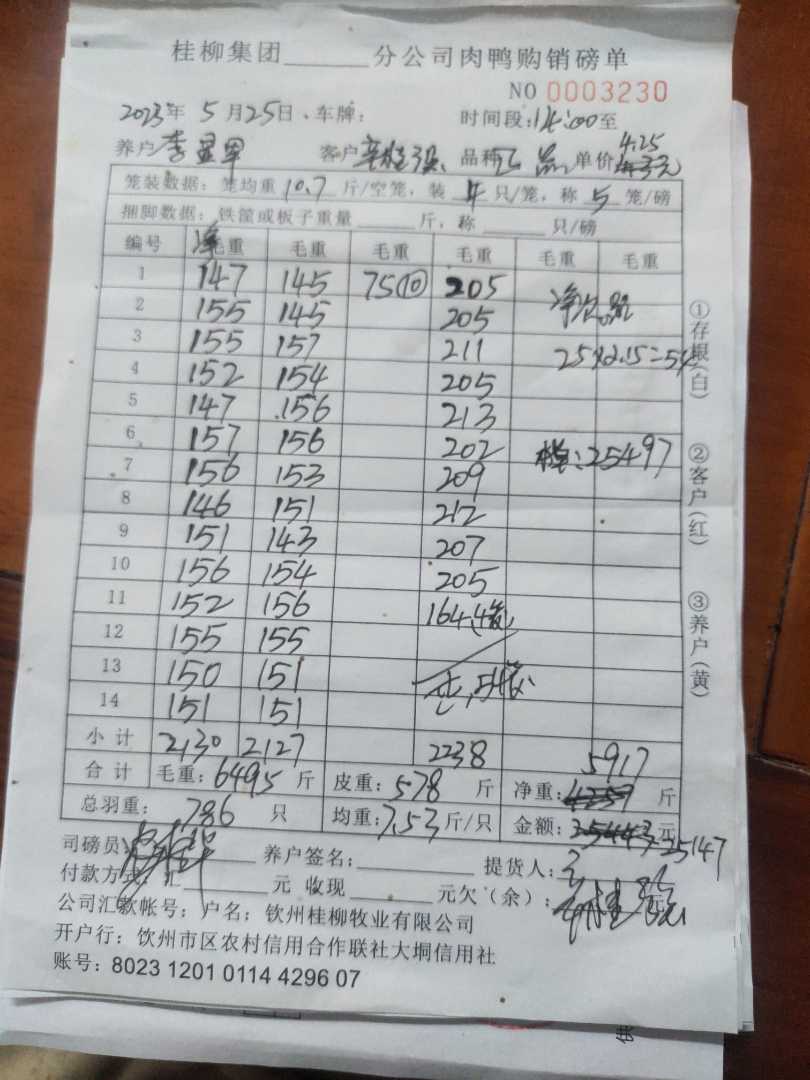 桂柳集团______分公司肉鸭购销磅单
NO 0003230
2023年 5月25日、车牌: 时间段:12:00至
养户 李 客户 品种 品 单价 4.25
笼装数据: 笼均重 10.7 斤/空笼, 装 4 只/笼, 称 5 笼/磅
捆脚数据: 铁筐或板子重量______斤, 称______只/磅
编号 净毛重 毛重 毛重 毛重 毛重 毛重
1 147 145 75(10) 205
2 155 145 205
3 155 157 211 25×2.15=54
4 152 154 205
5 147 156 213
6 157 156 202 25497
7 156 153 209
8 146 151 212
9 151 143 207
10 156 154 205
11 152 156 164
12 155 155
13 150 151
14 151 151
小计 2130 2127 2238 5917
合计 毛重: 6495 斤 皮重: 578 斤 净重: 斤
总羽重: 786 只 均重: 7.53 斤/只 金额: 25443 元 25147
司磅员: 养户签名: 提货人:
付款方式: 汇______元 收现______元欠(余): 元
公司汇款帐号: 户名; 钦州桂柳牧业有限公司
开户行: 饮州市区农村信用合作联社大垌信用社
账号: 8023 1201 0114 4296 07
①存根(白) ②客户(红) ③养户(黄)